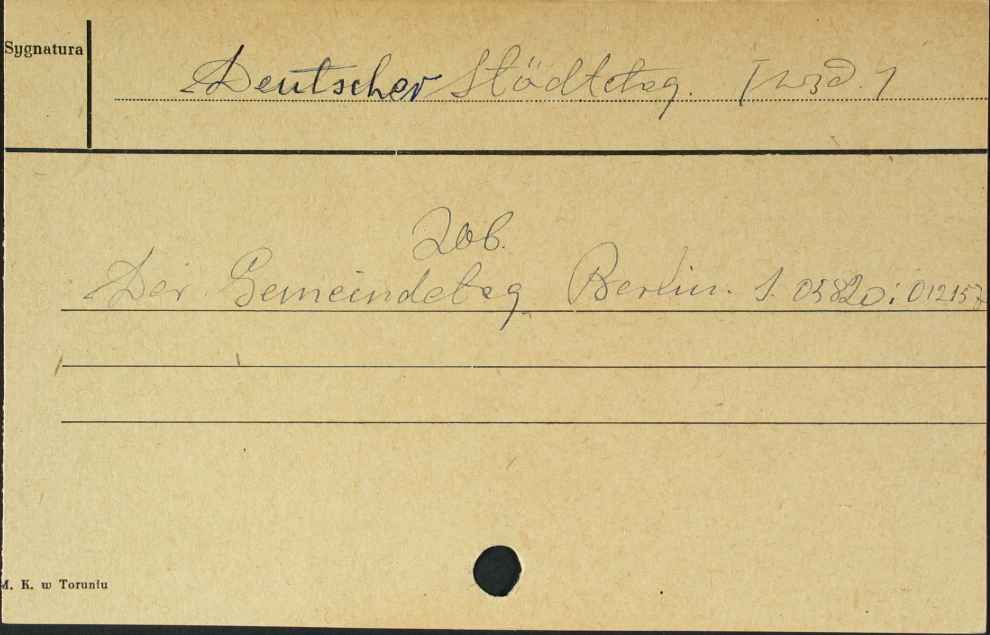 Sygnatura
Deutscher Städtetag. [wyd.]
Zob.
Der Gemeindetag Berlin. S. 0582o; 012157
M. K. w Toruniu